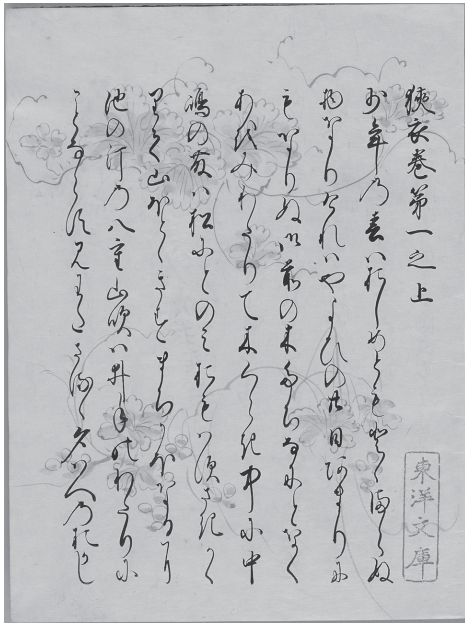 狭衣巻第一之上
少年の春ハおしめともとゝまらぬ
物なりけれハやよひの廿日あまりに
もなりぬ御前の木たちなにとなく
あをみわたりて木くらき中に中
嶋の藤ハ松にとのみおもハすさきかゝ
りて山ほとゝきすまちかほなり
池の汀の八重山吹ハ井手のわたりに
ことならす見わたさるゝ夕はへのおかし
東洋文庫